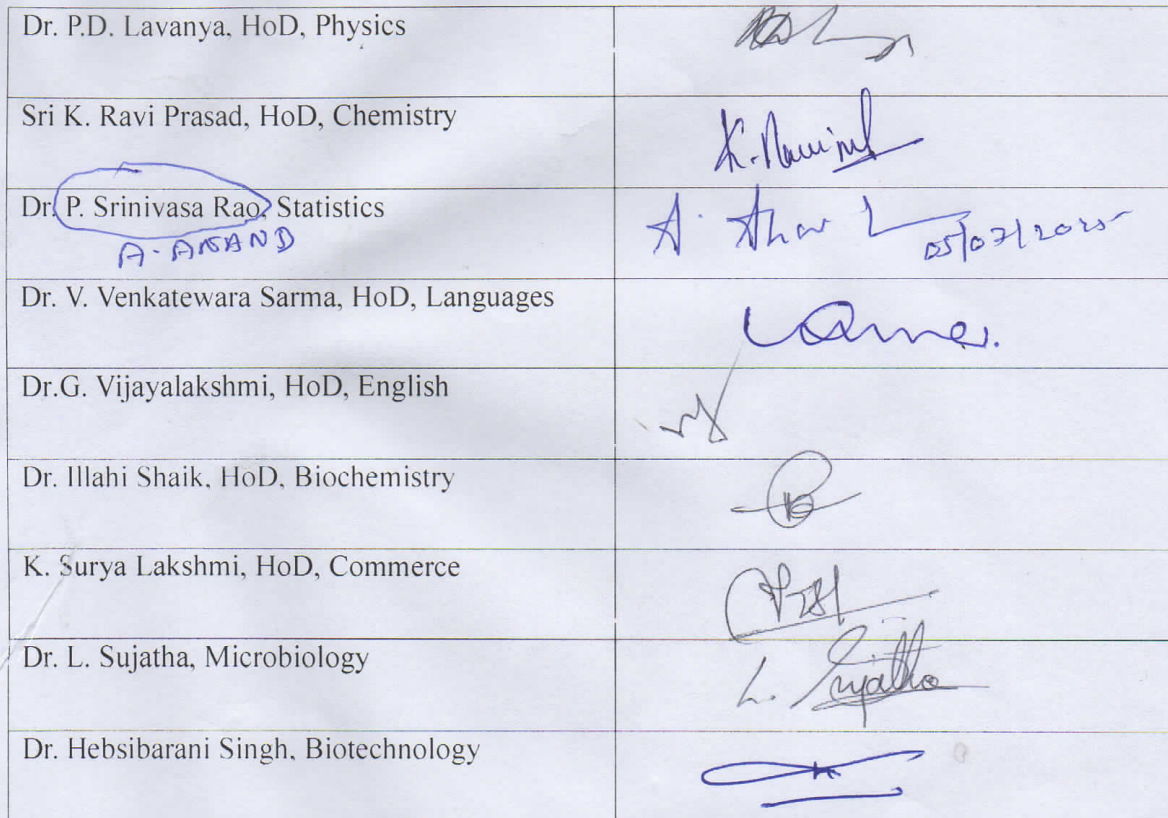 Dr. P.D. Lavanya, HoD, Physics
Sri K. Ravi Prasad, HoD, Chemistry
Dr. P. Srinivasa Rao, Statistics
A. ANAND
05/07/2025
Dr. V. Venkatewara Sarma, HoD, Languages
Dr.G. Vijayalakshmi, HoD, English
Dr. Illahi Shaik, HoD, Biochemistry
K. Surya Lakshmi, HoD, Commerce
Dr. L. Sujatha, Microbiology
L. Sujatha
Dr. Hebsibarani Singh, Biotechnology